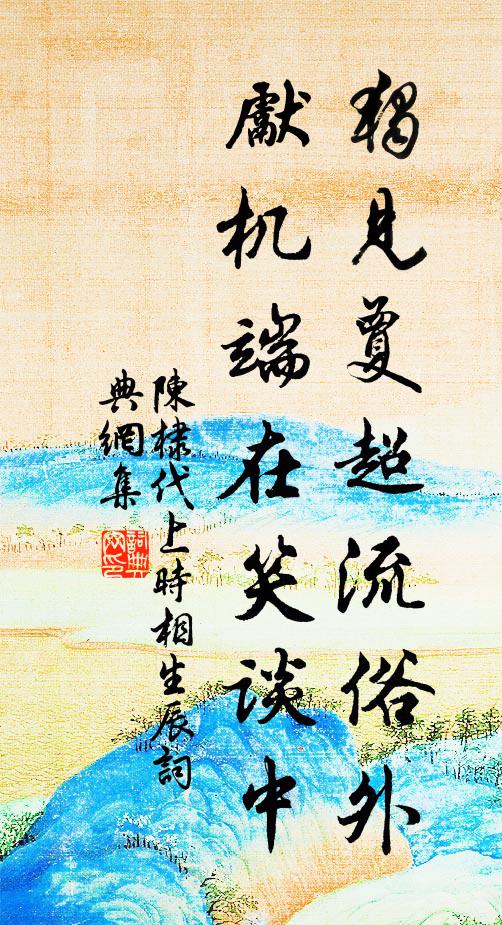 獨見夐超流俗外
獻机端在笑談中
陳棣代上時相生辰詞
典網集